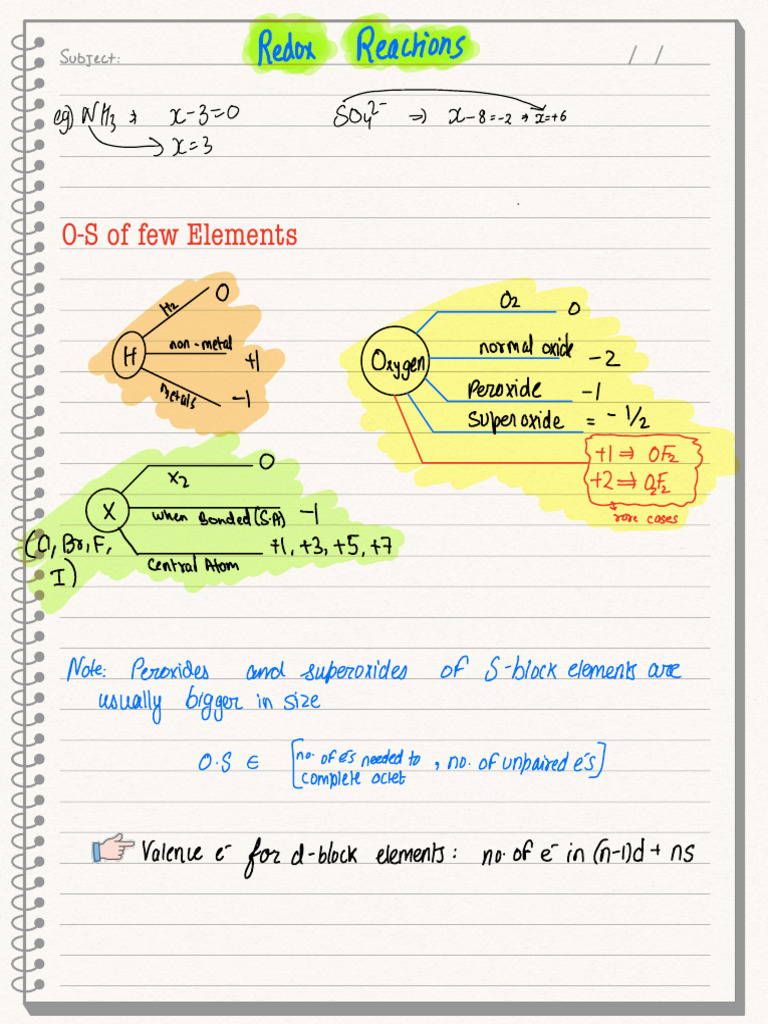 Redox Reactions
Subject: / /
eg) NH₃ ⇒ x-3=0
x=3
SO₄²⁻ ⇒ x-8=-2 ⇒ x=+6
O-S of few Elements
H
H₂ 0
non-metal +1
Metals -1
Oxygen
O₂ 0
normal oxide -2
Peroxide -1
Superoxide = -1/2
+1 ⇒ OF₂
+2 ⇒ O₂F₂
rare cases
X
X₂ 0
when Bonded (S.A) -1
Central Atom +1, +3, +5, +7
(Cl, Br, F,
I)
Note: Peroxides and superoxides of S-block elements are
usually bigger in size
O.S ∈ [no. of e⁻s needed to complete octet, no. of unpaired e⁻s]
Valence e⁻ for d-block elements: no. of e⁻ in (n-1)d + ns